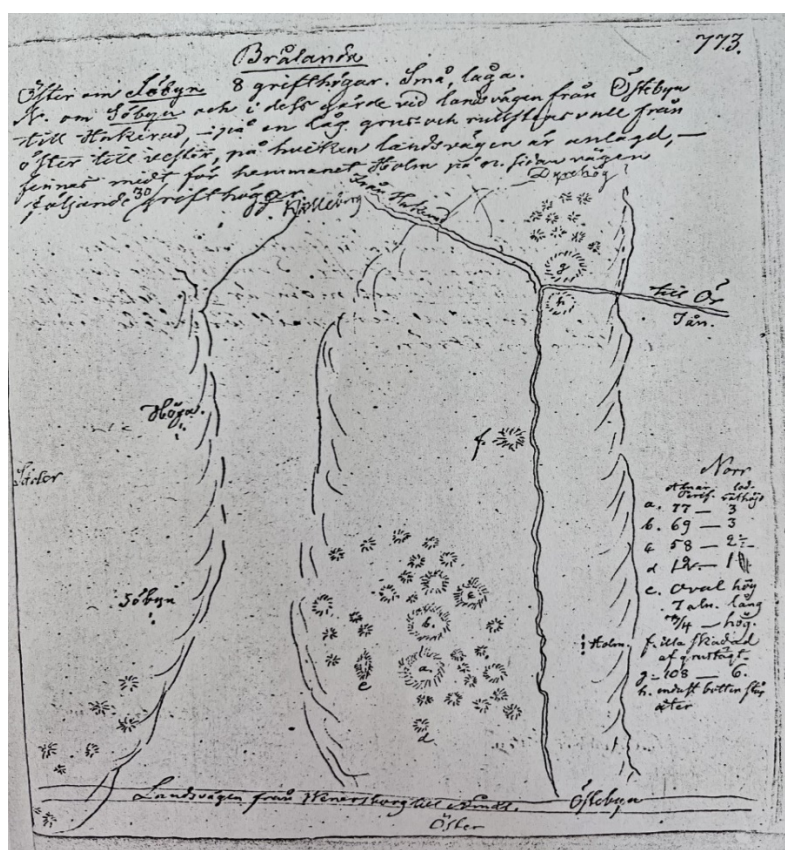 773.
Brålanda
Öster om Söbyn 8 grifthögar. Små, låga.
N. om Söbyn och i dess gärde vid landsvägen från Östebyn
till Hakerud – på en låg grus och rullstensvall från
öster till vester, på hvilken landsvägen är anlagd, —
finnas midt för hemmanet Holm på n. sidan vägen
följande 30 grifthögar
Kjelleberg
från Hakerud
Dyrehög
g
h
till Ör
Höga.
f.
Söder
Norr
a. 77 — 3
b. 69 — 3
c 58 — 2½
d 12 — 1
e. Oval hög
7 aln. lång
hög.
f. illa skadad
af grustägt.
g = 108 — 6.
h. endast botten står
åter
Söbyn
c
b.
Holm.
a
e
d
Landsvägen från Wenersborg till Åmål. Östebyn
Öster